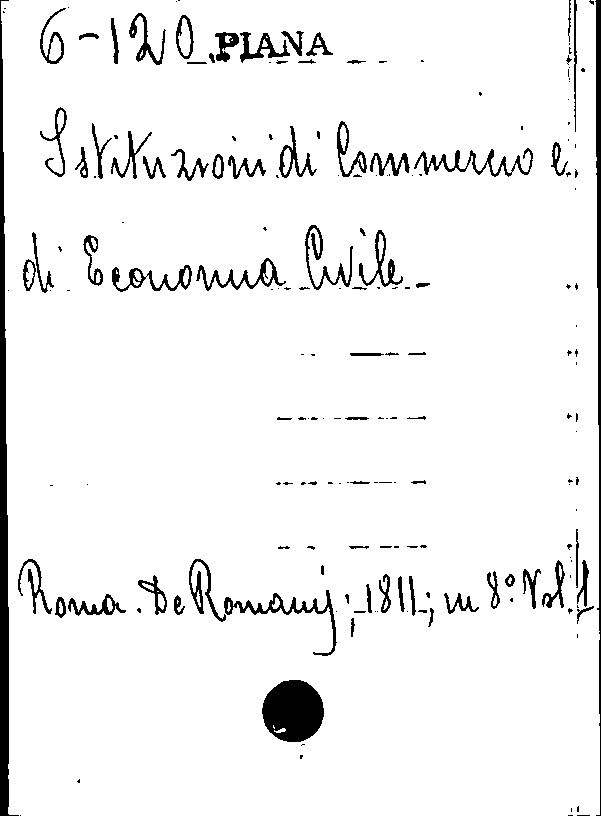 6-120 PIANA
Istituzioni di Commercio e
di Economia Civile
Roma. De Romanis; 1811; in 8º. Vol. 1